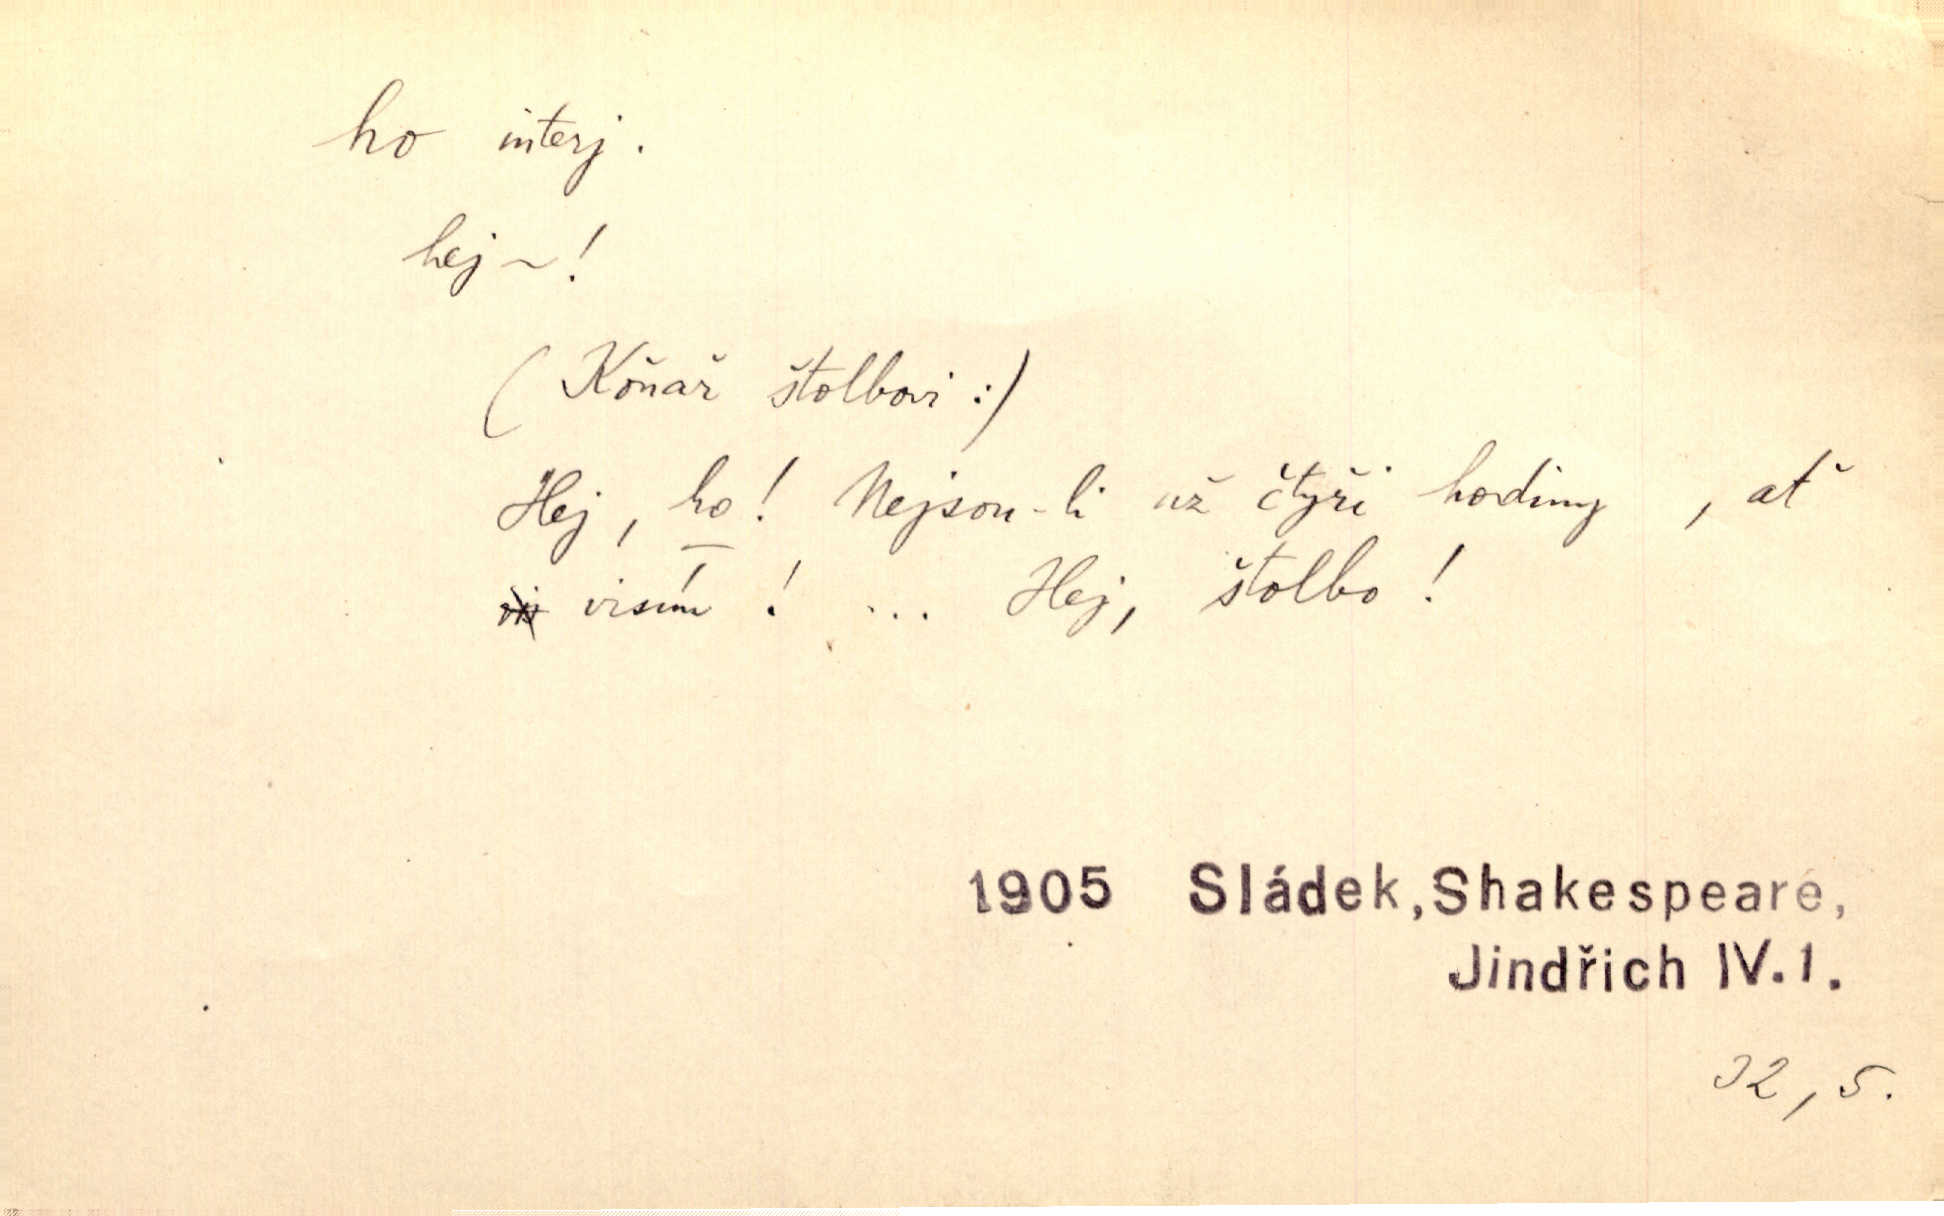 ho interj.
hej ~!
(Koňař štolbovi:)
Hej, ho! Nejsou-li už čtyři hodiny, ať
visím! ... Hej, štolbo!
1905 Sládek, Shakespeare,
Jindřich IV.1.
32,5.